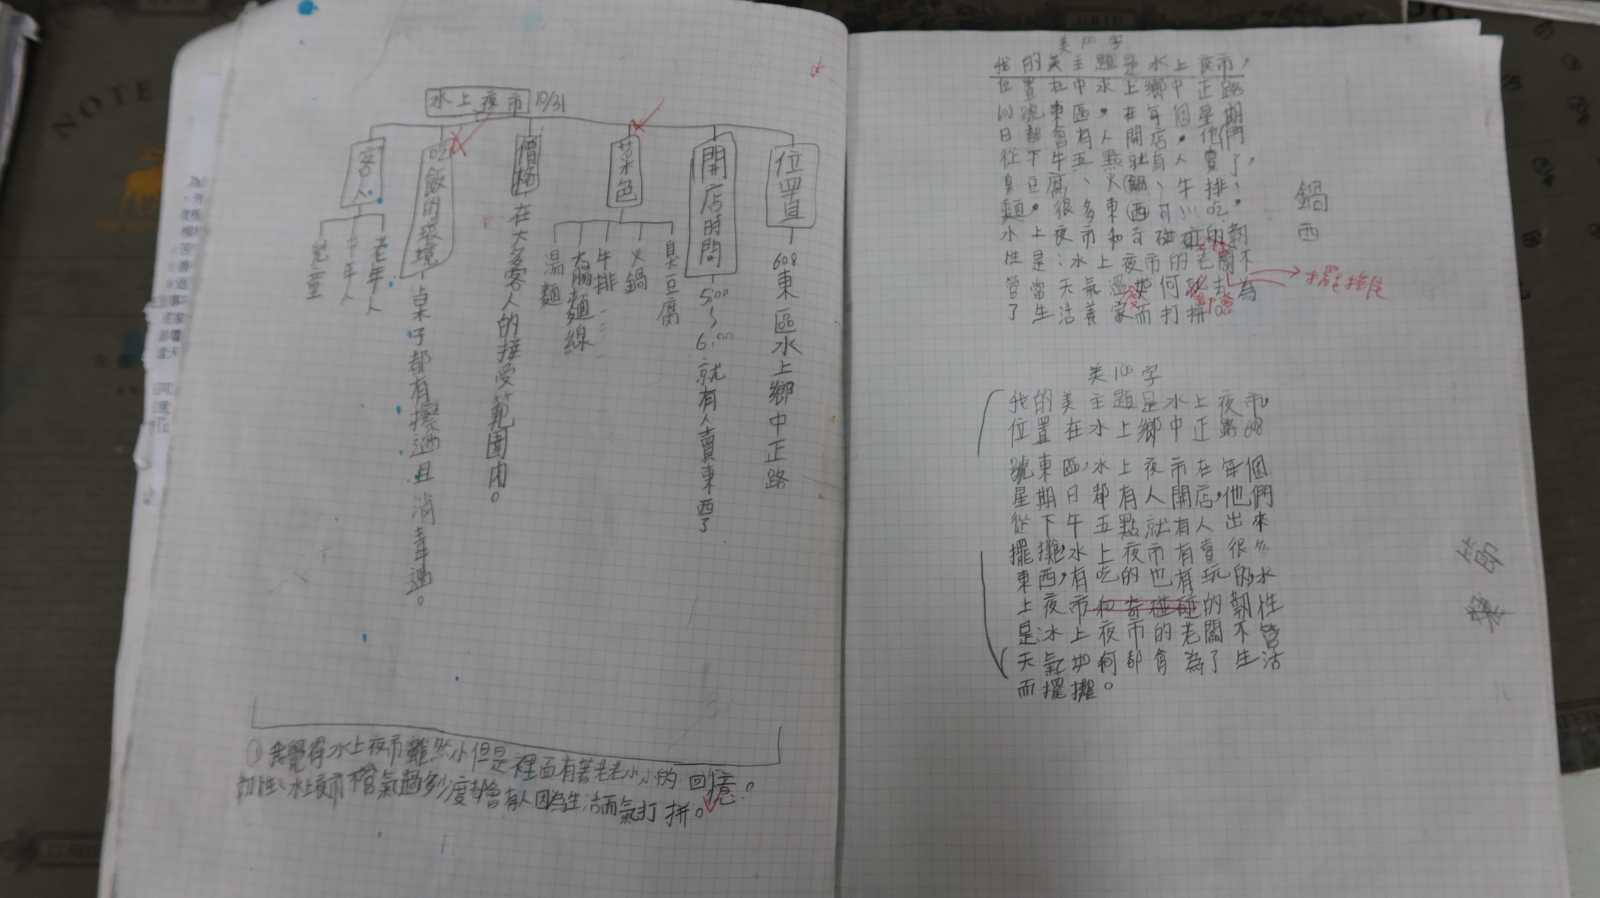 水上夜市 10/31
位置
608東區水上鄉中正路
開店時間
5:00~6:00就有人賣東西了
菜色
臭豆腐
火鍋
牛排
大腸麵線
湯麵
價格
在大多客人的接受範圍內。
吃飯的環境
桌子都有擦過且消毒過。
客人
老年人
中年人
兒童
①我覺得水上夜市雖然小但是裡面有著老老小小的回憶。
韌性:水上夜市不管氣溫多少度都會有人因為生活而打拼。
美100字
我的美主題是水上夜市,
位置在中水上鄉中正路
608號東區,在年個星期
日都會有人開店。他們
從下午五點就有人賣了,
臭豆腐、火鍋、牛排、
麵。很多東西可以吃。
水上夜市和 碰碰的韌
性是:水上夜市的老闆不
管當天氣溫如何 去為
了生活 而打拼
擺攤
鍋
西
美100字
我的美主題是水上夜市,
位置在水上鄉中正路608
號東區,水上夜市在年個
星期日都有人開店,他們
從下午五點就有人出來
擺攤,水上夜市有賣很多
東西,有吃的也有玩的水
上夜市和奇碰碰的韌性
是水上夜市的老闆不管
天氣如何都會為了生活
而擺攤。
節